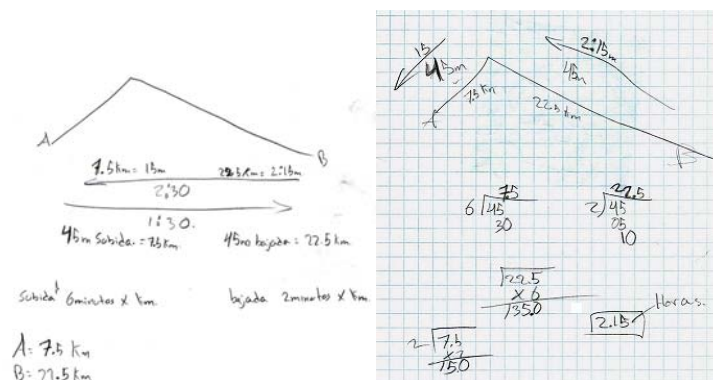 A
B
7.5 Km = 15m 22.5 Km = 2:15m
2:30
1:30.
45m Subida = 7.5 Km. 45m bajada = 22.5 km
Subida 6 minutos x Km. bajada 2 minutos x Km
A = 7.5 Km
B = 22.5 Km
15
45m
7.5 Km
A
22.5 km
2:15m
45m
B
7.5
6 45
30
22.5
2 45
05
10
22.5
x 6
135.0
2.15 Horas.
2 7.5
x2
15.0